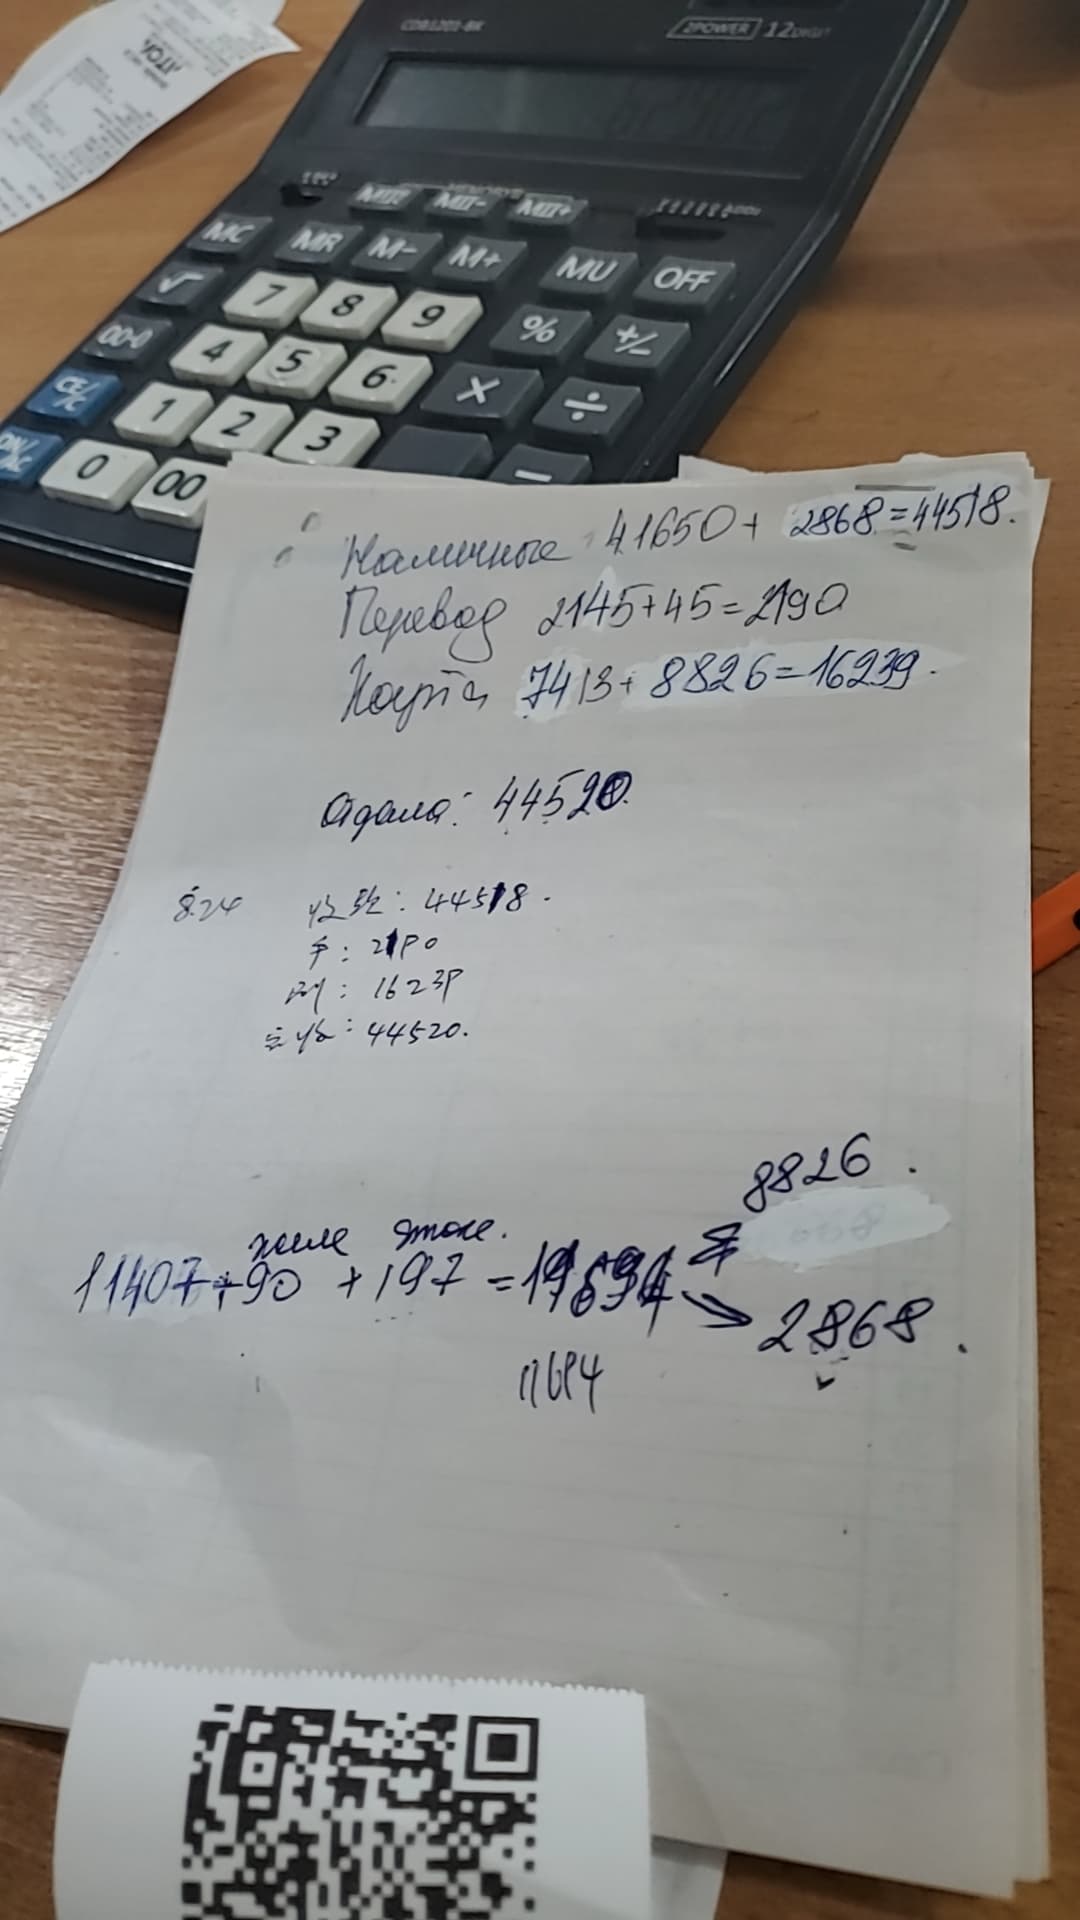 CDB1201-BK 2POWER 12DIGIT
ИТОГ
MII- MII+
MC MR M- M+ MU OFF
√ 7 8 9 % +/-
00→0 4 5 6 × ÷
CE/C 1 2 3 −
ON/AC 0 00
Наличные 41650 + 2868 = 44518.
Перевод 2145+45=2190
Карта 7413+ 8826=16239.
Отдала: 44520.
8.24 收款: 44518.
手: 2190
刷: 16239
实收: 44520.
8826.
11407+90 +197 =
2868.
11694